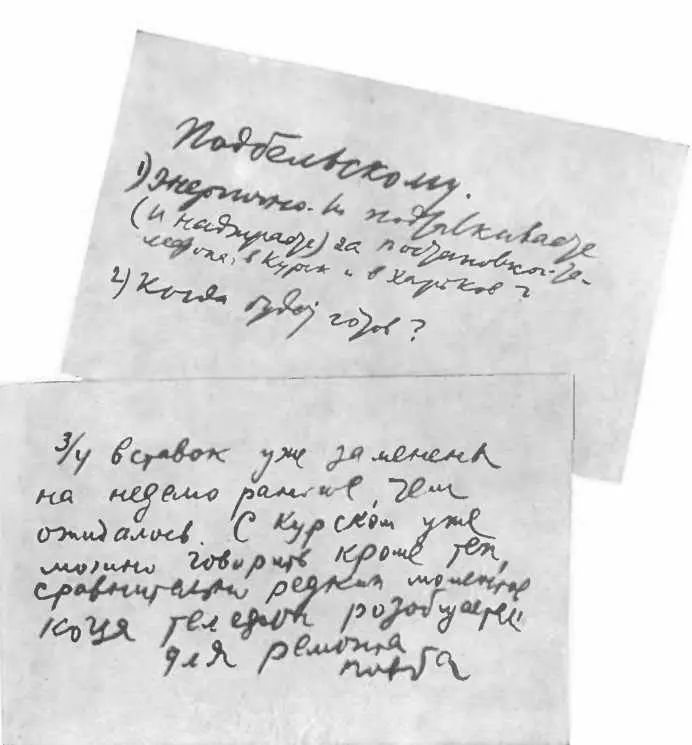 Подбельскому.
1) Энергично ли подталкиваете
(и надзираете) за постановкой те-
лефона в Курск и в Харьков?
2) Когда будет готов?
3/4 вставок уже заменены
на неделю раньше, чем
ожидалось. С Курском уже
можно говорить кроме тех,
сравнительно редких моментов
когда телефон разобщается
для ремонта